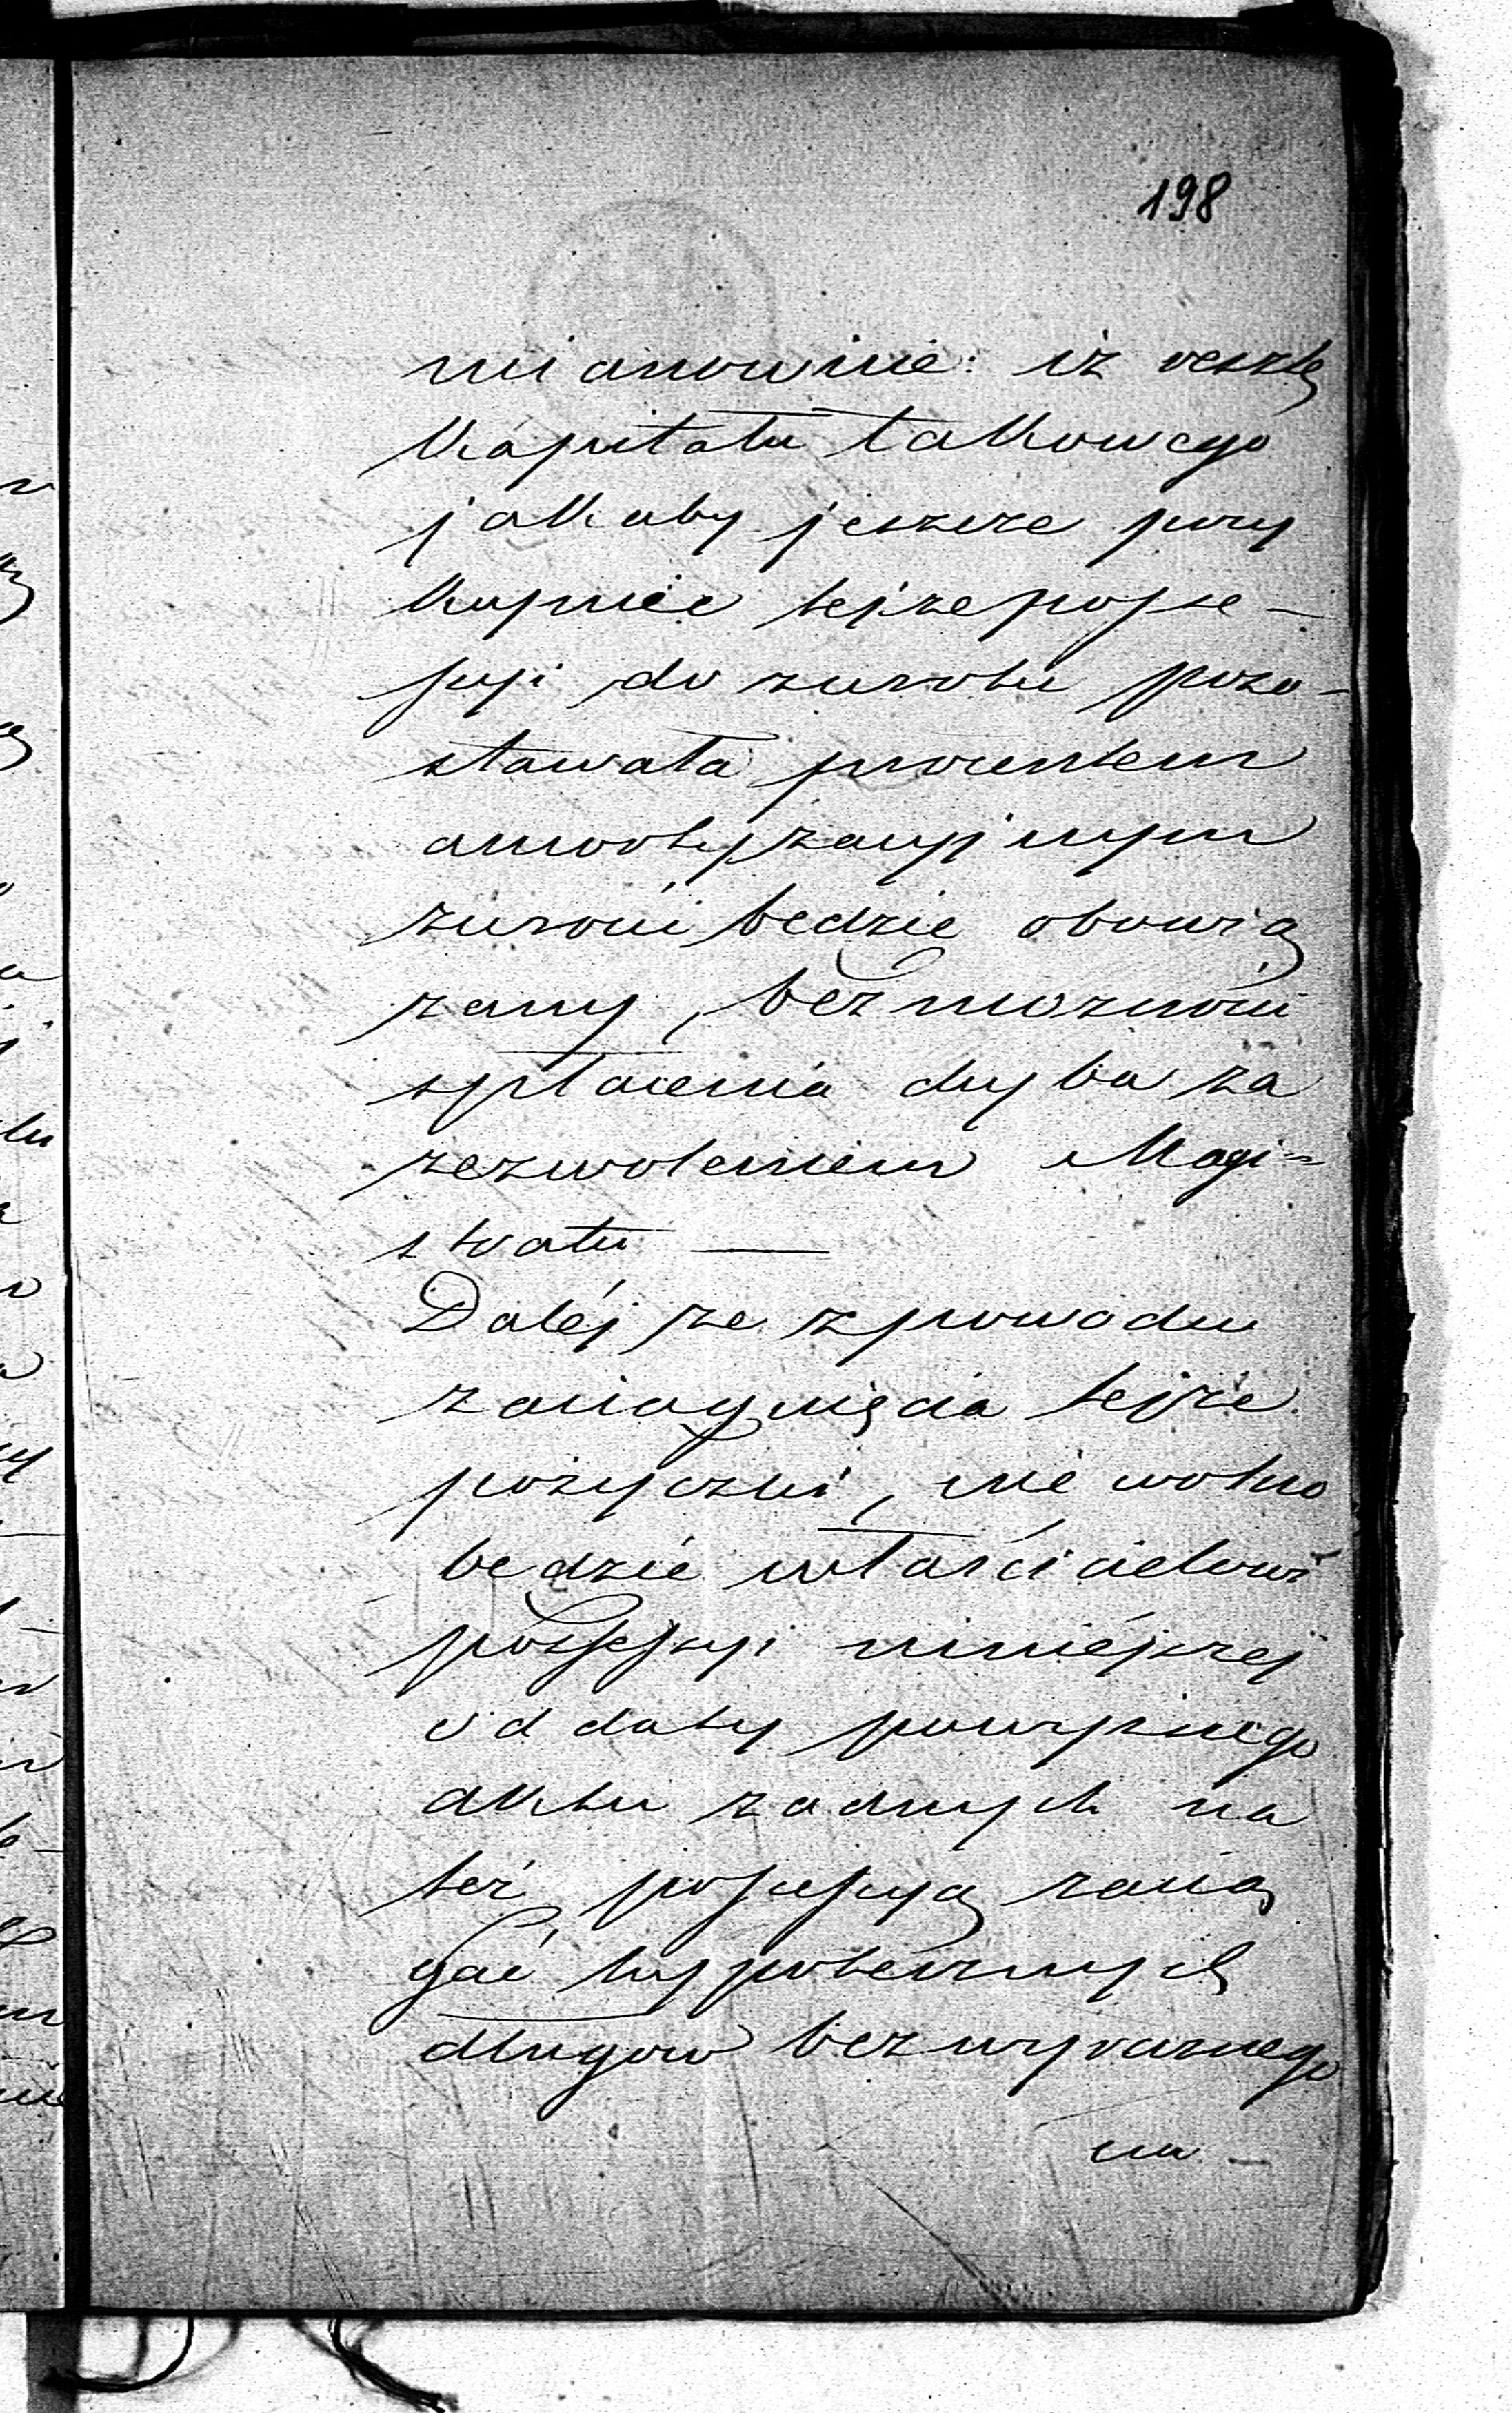 198
mianowicie: iż resztę
Kapitału takowego
jakaby jeszcze przy
kupnie tejże posse-
syi do zwrotu pozo-
stawała procentem
amortyzacyjnym
zwrócić będzie obowią
zany, bez możności
spłacenia chyba za
zezwoleniem Magi-
stratu —
Daléj że z powodu
zaciągnięcia tejże
pożyczki, nie wolno
będzie właścicielowi
possessyi niniéjszej
od daty powyższego
aktu żadnych na
też possessyą zacią
gać hypotecznych
długów bez wyraźnego
na -